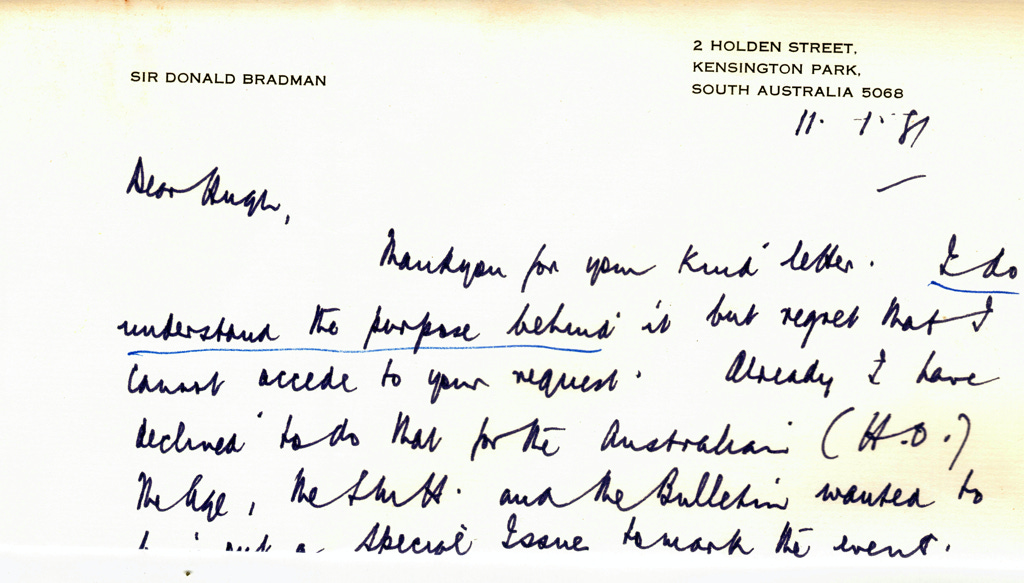 SIR DONALD BRADMAN
2 HOLDEN STREET,
KENSINGTON PARK,
SOUTH AUSTRALIA 5068
11. 1. 81
Dear Hugh,
Thankyou for your kind letter. I do
understand the purpose behind it but regret that I
cannot accede to your request. Already I have
declined to do that for the Australian (H.O.)
The Age, the S.M.H. and the Bulletin wanted to
a Special Issue to mark the event.